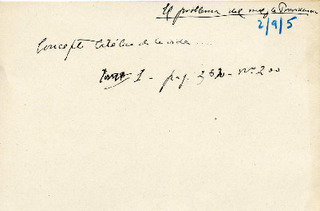 El problema del mal y la Providencia
2/9/5
Concepto católico de la vida
Tomo I - pag. 230 - nº 200